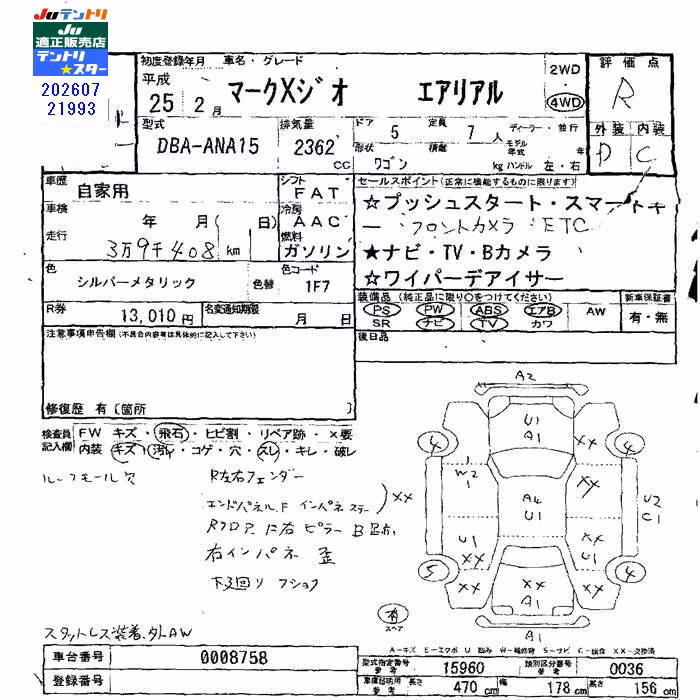 Juテントリ
JU
適正販売店
テントリ
★スター
202607
21993
初度登録年月 車名・グレード
平成
25 2月
マークXジオ エアリアル
2WD
4WD
評価点
R
外装 内装
D C
型式
DBA-ANA15
排気量
2362 CC
ドア 5 定員 7 人
形状 ワゴン 積載 kg
ディーラー・並行
モデル年式 年
ハンドル 左・右
車歴
自家用
シフト
FAT
車検 年 月 (日)
冷房
AAC
走行
3万9千408 km
燃料
ガソリン
色
シルバーメタリック
色替
色コード
1F7
R券
13,010円
名変通知期限
月 日
セールスポイント(正常に機能するものに限ります)
☆プッシュスタート・スマートキ
ー フロントカメラ ETC
★ナビ・TV・Bカメラ
☆ワイパーデアイサー
装備品(純正品に限り○をつけてください)
PS PW ABS エアB AW
SR ナビ TV カワ
新車保証書
有・無
後日品
注意事項申告欄(不具合内容は具体的に記入して下さい)
修復歴 有〔箇所 〕
検査員記入欄
FW キズ・飛石・ヒビ割・リペア跡・×要
内装 キズ・汚レ・コゲ・穴・スレ・キレ・破レ
ルーフモール欠
R左右フェンダー
エンドパネル.F インパネステー
××
Rフロア.F右ピラーB
右インパネ 歪
下廻り フショク
スタットレス装着.外AW
A2
U1
A1
4
4
××
W2
1
××
A4
U1
U2
C1
U1
××
××
5
4
××
××
××
A1
A1
有
スペア
A-キズ E-エクボ U-凹み W-補修跡 S-サビ C-腐食 XX-交換済
車台番号 0008758
登録番号
型式指定番号 参考 15960 類別区分番号 参考 0036
長さ 470 cm 幅 178 cm 高さ 156 cm